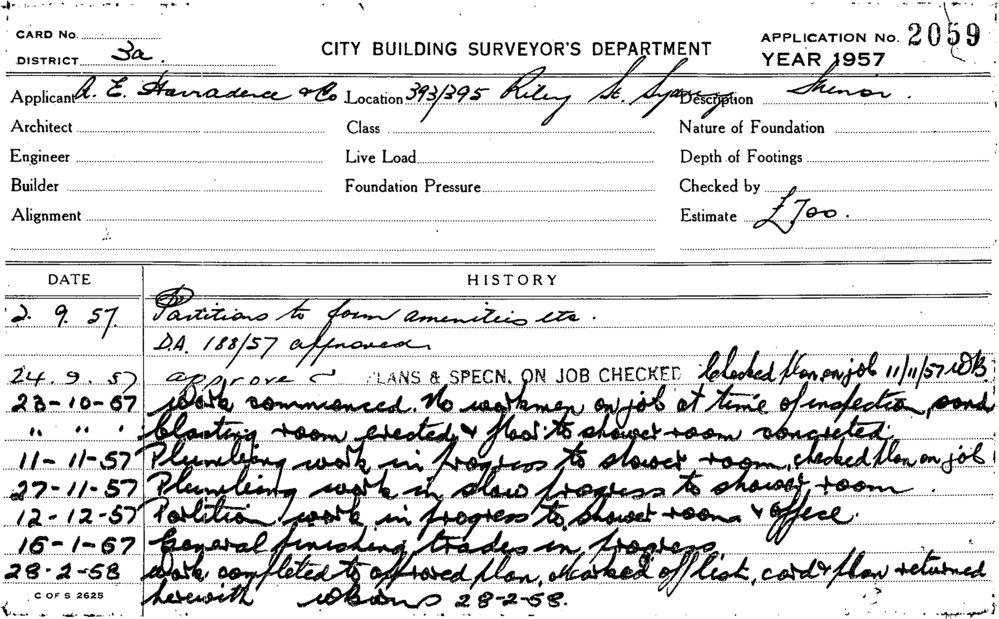 CARD No.
DISTRICT 3a.
CITY BUILDING SURVEYOR'S DEPARTMENT
APPLICATION No. 2059
YEAR 1957
Applicant A. E. & Co. Location 393/395 Riley St. Sydney Description
Architect Class Nature of Foundation
Engineer Live Load Depth of Footings
Builder Foundation Pressure Checked by
Alignment Estimate £700.
DATE HISTORY
2. 9. 57. Partitions to form amenities etc.
D.A. 188/57 approved
24. 9. 57 approve PLANS & SPECN. ON JOB CHECKED Checked plan on job 11/11/57 WB
23-10-57 Work commenced. No workmen on job at time of inspection, sand
" " " blasting room erected & floor to shower room concreted
11-11-57 Plumbing work in progress to shower room, checked plan on job
27-11-57 Plumbing work in slow progress to shower room.
12-12-57 Partition work in progress to shower room & office.
16-1-57 General finishing trades in progress
28-2-58 Work completed to approved plan, marked off list, card & plan returned
C OF S 2625 herewith 28-2-58.